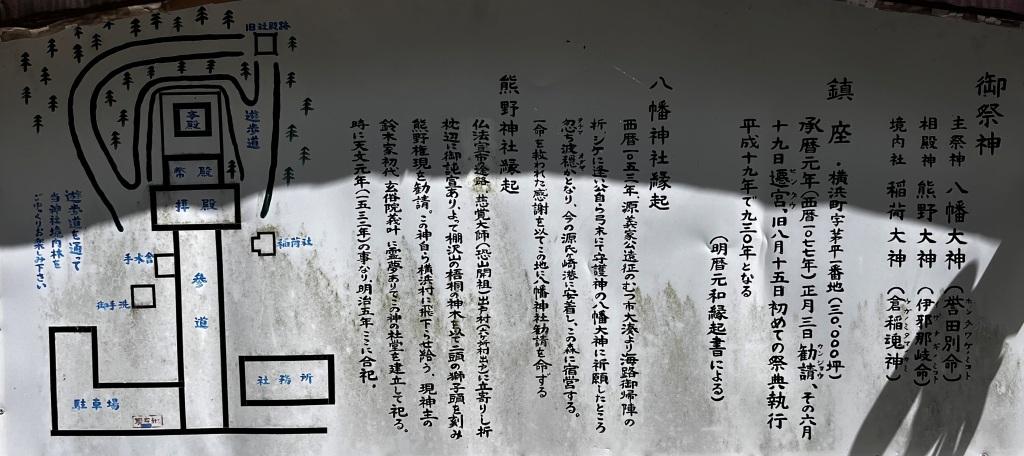 御祭神
主祭神 八幡大神(誉田別命)
ホンタワケノミコト
相殿神 熊野大神(伊邪那岐命)
イザナギノミコト
境内社 稲荷大神(倉稲魂神)
鎮座・横浜町字茅平一番地(三〇〇〇坪)
承暦元年(西暦一〇七七年)正月三日勧請、その六月
カンジョウ
十九日遷宮、旧八月十五日初めての祭典執行
センクウ
平成十九年で九三〇年となる
(明暦元和縁起書による)
八幡神社縁起
西暦一〇五三年源義家公遠征のむつ市大湊より海路御帰陣の
折シケに逢へ公自ら弓末にて守護神の八幡大神に祈願したところ
忽ち波穏かとなり、今の源氏ヶ崎港に安着し、この森に宿営する。
一命を救われた感謝を以てこの地に八幡神社勧請を命ずる
熊野神社縁起
仏法宣布の途路、慈覚大師(恐山開祖)出戸村(六ヶ所村出戸)に立寄りし折
枕辺に御託宣あり、よって棚沢山の梧桐の神木を以て二頭の獅子頭を刻み
熊野権現を勧請。この神自ら横浜村に飛下らせ給う。現神主の
鈴木家初代 玄俗院義叶に霊夢ありてこの神の社堂を建立して祀る。
時に天文元年(一五三二年)の事なり明治五年ここに合祀。
旧社殿跡
本殿
遊歩道
幣殿
拝殿
稲荷社
手水舎
御手洗
参道
社務所
駐車場
現在地
遊歩道を通って
当神社境内林を
ごゆっくりお楽しみ下さい